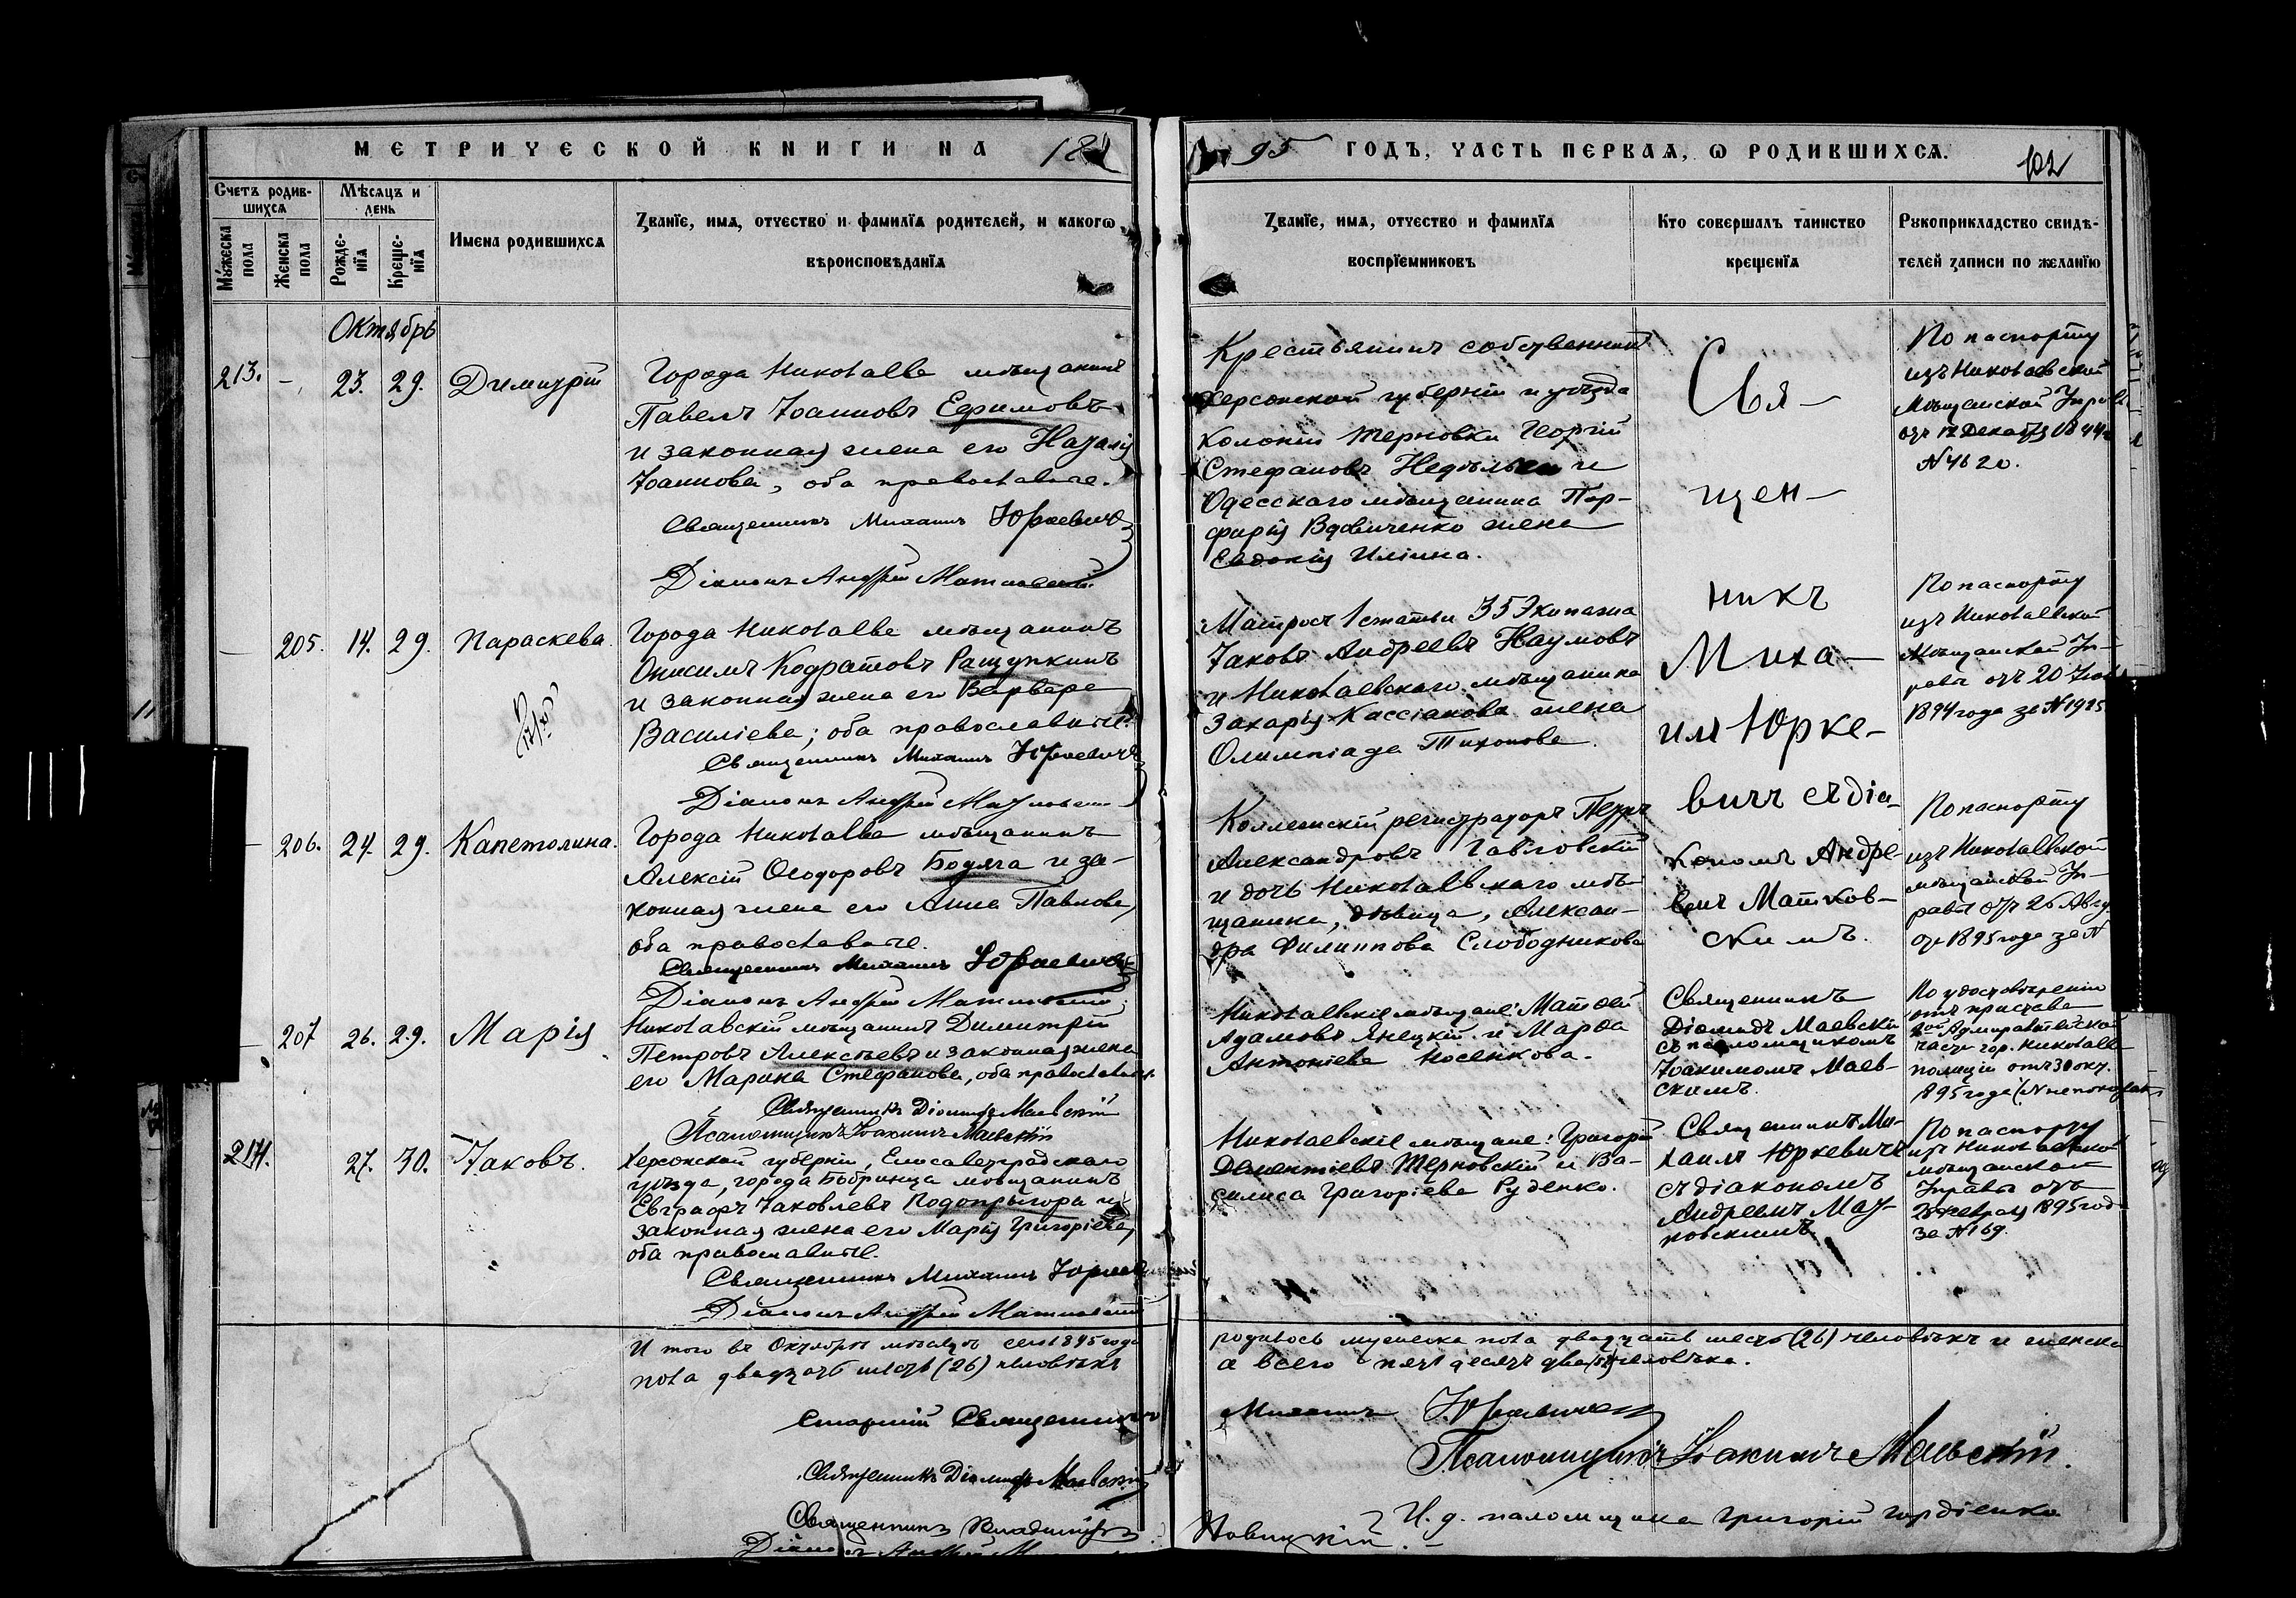 МЕТРИЧЕСКОЙ КНИГИ НА 18
95 ГОДЪ, ЧАСТЬ ПЕРВАЯ, Ѡ РОДИВШИХСЯ.
102
Счетъ родив-
шихся
Мужеска пола
Женска пола
Мѣсяцъ и
день
Рожде-
нїя
Креще-
нїя
Имена родившихся
Званїе, имя, отчество и фамилїя родителей, и какогѡ
вѣроисповѣданїя
Званїе, имя, отчество и фамилїя
воспрїемниковъ
Кто совершалъ таинство
крещенїя
Рукоприкладство свидѣ-
телей записи по желанїю
Октябрь
213. - 23. 29. Димитрій
Города Николаева мѣщанинъ
Павелъ Іоанновъ Ефимовъ
и законная жена его Наталія
Іоаннова, оба православные.
Священникъ Михаилъ Юркевичъ
Діаконъ Андрей Матковскій
Крестьянинъ собственникъ
Херсонской губерніи и уѣзда
колоніи Терновки Георгій
Стефановъ и
Одесскаго мѣщанина Пор-
фирія Вдовиченко жена
Евдокія Иліина.
По паспорту
изъ Николаевской
Мѣщанской Управы
N 4620.
205. 14. 29. Параскева.
Города Николаева мѣщанинъ
Онисимъ Кодратовъ Ращупкинъ
и законная жена его Варвара
Василіева; оба православные.
Священникъ Михаилъ Юркевичъ
Діаконъ Андрей Матковскій
Матросъ 1 статьи 35 Экипажа
Іаковъ Андреевъ Наумовъ
и Николаевскаго мѣщанина
Захарія Кассіанова жена
Олимпіада Тихонова.
По паспорту
изъ Николаевской
Мѣщанской Уп-
равы отъ 20
1894 года за N 1915
206. 24. 29. Капетолина.
Города Николаева мѣщанинъ
Алексій Ѳеодоровъ Бодяга и за-
конная жена его Анна Павлова,
оба православные.
Священникъ Михаилъ Юркевичъ
Діаконъ Андрей Матковскій
Коллежскій регистраторъ Петръ
Александровъ Гавловскій
и дочь Николаевскаго мѣ-
щанина, дѣвица, Алексан-
дра Филиппова Слободникова
По паспорту
изъ Николаевской
мѣщанской Уп-
равы отъ 26 Авгу
1895 года за N
Свя-
щен-
никъ
Миха-
илъ Юрке-
вичъ съ діа-
кономъ Андре-
емъ Матков-
скимъ.
207 26. 29. Марія
Николаевскій мѣщанинъ Димитрій
Петровъ Алексѣевъ и законная жена
его Марина Стефанова, оба православные.
Священникъ Діомидъ Маевскій
Псаломщикъ Іоакимъ Маевскій
Николаевскіе мѣщане: Матѳей
Адамовъ Янецкій и Марѳа
Антоніева Носенкова.
Священникъ
Діомидъ Маевскій
съ псаломщикомъ
Іоакимомъ Маев-
скимъ.
По удостовѣренію
отъ пристава
Адмиралтейской
части гор. Николаева
полиціи отъ 30 окт.
1895 года (N не показанъ)
214. 27. 30. Іаковъ.
Херсонской губерніи, Елисаветградскаго
уѣзда, города Бобринца мѣщанинъ
Евграфъ Іаковлевъ Подопрыгора и
законная жена его Марія Григоріева,
оба православные.
Священникъ Михаилъ Юркевичъ
Діаконъ Андрей Матковскій
Николаевскіе мѣщане: Григорій
Дементіевъ Терновскій и Ва-
силиса Григоріева Руденко.
Священникъ Ми-
хаилъ Юркевичъ
съ діакономъ
Андреемъ Мат-
ковскимъ
По паспорту
изъ Николаевской
мѣщанской
Управы отъ
1895 года
за N 169.
И того въ Октябрѣ мѣсяцѣ сего 1895 года
родилось мужеска пола двадцать шесть (26) человѣкъ и женска
пола двадцать шесть (26) человѣкъ
а всего пятьдесятъ два (52) человѣка.
Старшій Священникъ
Михаилъ Юркевичъ
Священникъ Діомидъ Маевскій
Псаломщикъ Іоакимъ Маевскій.
Священникъ Владиміръ
Новицкій.
И. д. псаломщика Григорій Гордіенко
Діаконъ Андрей